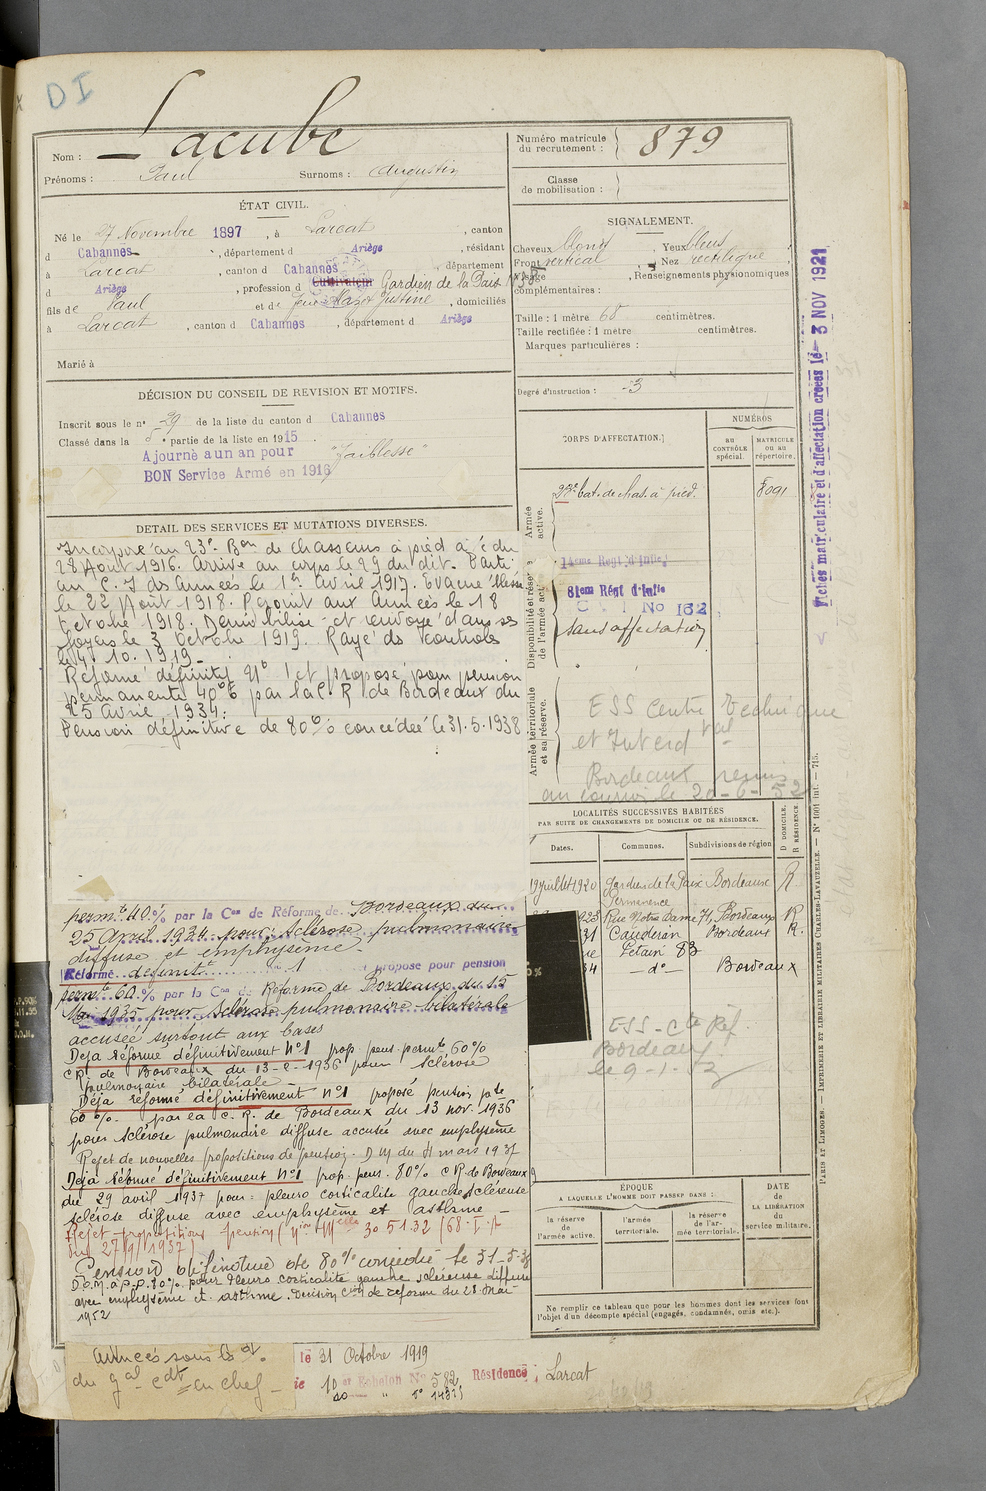 DI
Nom : Lacube
Prénoms : Paul Surnoms : Augustin
ÉTAT CIVIL.
Né le 27 Novembre 1897, à Larcat, canton
d Cabannes, département d Ariège, résidant
à Larcat, canton d Cabannes, département
d Ariège, profession d Cultivateur Gardien de la Paix
fils de Paul et de Justine, domiciliés
à Larcat, canton d Cabannes, département d Ariège
Marié à
DÉCISION DU CONSEIL DE REVISION ET MOTIFS.
Inscrit sous le n° 29 de la liste du canton d Cabannes
Classé dans la 5e partie de la liste en 1915.
Ajourné a un an pour "Faiblesse"
BON Service Armé en 1916
DETAIL DES SERVICES ET MUTATIONS DIVERSES.
Incorporé au 23e Bon de chasseurs à pied à c du
28 Aout 1916. Arrivé au corps le 29 du dit. Parti
au C.I des armées le 1er Avril 1917. Evacué blessé
le 22 Aout 1918. Rejoint aux Armées le 18
Octobre 1918. Démobilisé et renvoyé dans ses
foyers le 3 Octobre 1919. Rayé des controles
le 4.10.1919.
Réformé définitif n° 1 et proposé pour pension
permanente 40% par la C.R de Bordeaux du
25 Avril 1934.
Pension définitive de 80% concédée le 31.5.1938
permte 40% par la Con de Réforme de Bordeaux du
25 Avril 1934 pour: Sclérose pulmonaire
diffuse et emphysème
Réformé définitt 1 et proposé pour pension
permte 60% par la Con de Réforme de Bordeaux du 15
Mai 1935 pour Sclérose pulmonaire bilatérale
accusée surtout aux bases
Déjà réformé définitivement N°1 prop. pens. permte 60%
C.R. de Bordeaux du 13-2-1936 pour sclérose
pulmonaire bilatérale
Déjà réformé définitivement n°1 proposé pension pte
60%. par la C.R. de Bordeaux du 13 nov. 1936
pour sclérose pulmonaire diffuse accusée avec emphysème
Rejet de nouvelles propositions de pension. D.M du 11 mars 1937
Déjà réformé définitivement N°1 prop. pens. 80% CR de Bordeaux
du 29 avril 1937 pour: pleuro corticalite gauche scléreuse
sclérose diffuse avec emphysème et asthme
Rejet propositions pension
du 27/9/1937
Pension définitive de 80% concédée le 31-5-38
80% pour Pleuro corticalite gauche scléreuse diffuse
avec emphysème et asthme. Décision Con de réforme du 28 Mai
1952
Armées sous le
du gal cdt en chef
le 31 Octobre 1919
10 et Echelon No 582 Résidence : Larcat
Numéro matricule du recrutement : 879
Classe de mobilisation :
SIGNALEMENT.
Cheveux blond, Yeux bleus
Front vertical, Nez rectiligne
Visage, Renseignements physionomiques
complémentaires :
Taille : 1 mètre 68 centimètres.
Taille rectifiée : 1 mètre centimètres.
Marques particulières :
Degré d'instruction : 3
CORPS D'AFFECTATION.
NUMÉROS
AU CONTRÔLE spécial.
MATRICULE OU AU répertoire.
Armée active.
23e bat. de chas. à pied. 8091
Disponibilité et réserve de l'armée active
14ème Regt d'Infie
81em Régt d'Infie
C. I No 162
Sans affectation
Armée territoriale et sa réserve.
ESS Centre Technique
et Interd
Bordeaux remis
au courrier le 20-6-52
LOCALITÉS SUCCESSIVES HABITÉES
PAR SUITE DE CHANGEMENTS DE DOMICILE OU DE RÉSIDENCE.
Dates. Communes. Subdivisions de région D DOMICILE. R RÉSIDENCE.
19 juillet 1920 Gardien de la Paix Bordeaux R
Permanence
1923 Rue Notre Dame 74, Bordeaux R
31 Caudéran Bordeaux R.
Pétain 83
34 -do- Bordeaux
ESS - Cte Réf
Bordeaux.
le 9-1-52
ÉPOQUE
A LAQUELLE L'HOMME DOIT PASSER DANS :
la réserve de l'armée active.
l'armée territoriale.
la réserve de l'armée territoriale.
DATE DE LA LIBÉRATION du service militaire.
Ne remplir ce tableau que pour les hommes dont les services font
l'objet d'un décompte spécial (engagés, condamnés, omis etc.).
Fiches matriculaire et d'affectation créées le 3 NOV 1921
PARIS ET LIMOGES. — IMPRIMERIE ET LIBRAIRIE MILITAIRES CHARLES-LAVAUZELLE. — N° 1001 int. — 715.